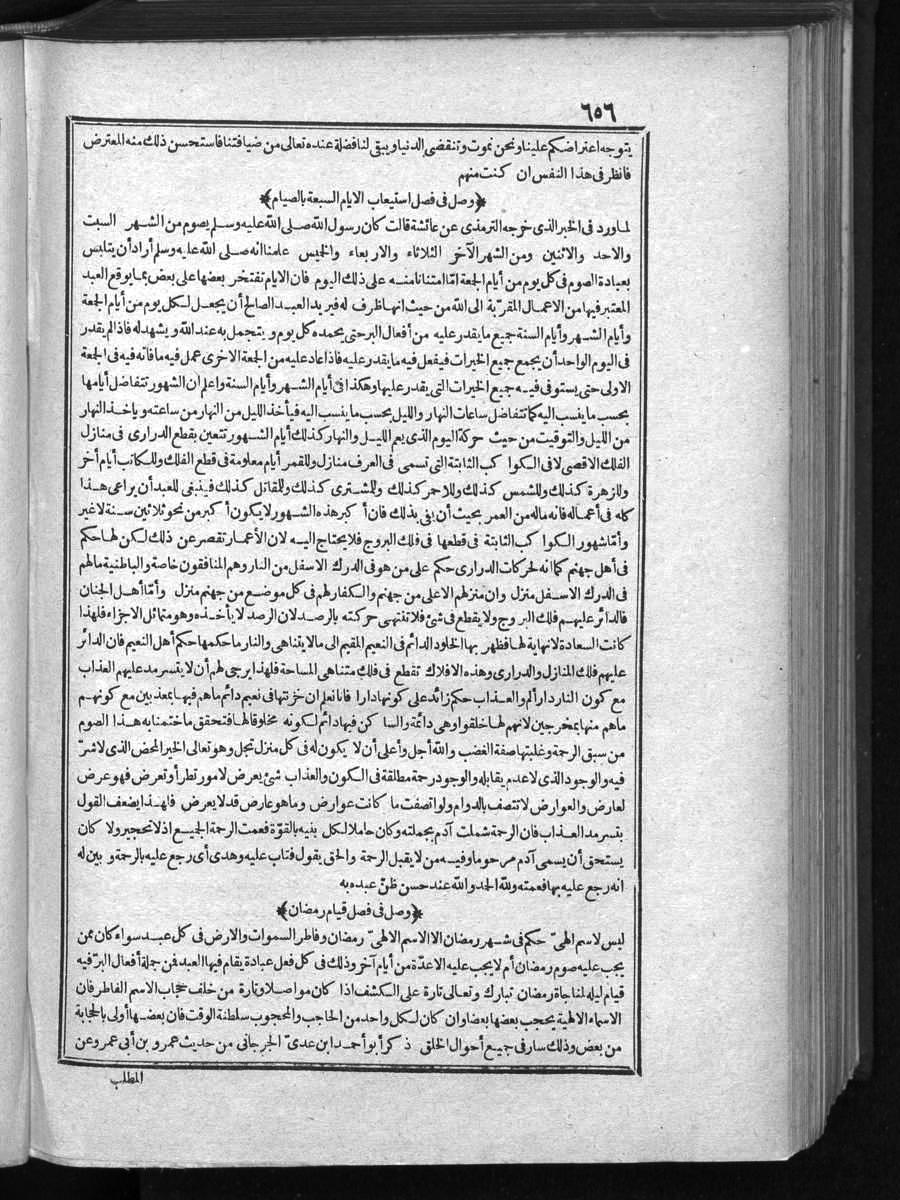 ٦٥٦
يتوجه اعتراضكم علينا ونحن نموت وتنقضى الدنيا ويبقى لنا فضلة عنده تعالى من ضيافتنا فاستحسن ذلك منه المعترض
فانظر فى هذا النفس ان كنت منهم
﴿وصل فى فصل استيعاب الايام السبعة بالصيام﴾
لما ورد فى الخبر الذى خرجه الترمذى عن عائشة قالت كان رسول الله صلى الله عليه وسلم يصوم من الشهر السبت
والاحد والاثنين ومن الشهر الآخر الثلاثاء والاربعاء والخميس علمنا انه صلى الله عليه وسلم أراد أن يتلبس
بعبادة الصوم فى كل يوم من أيام الجمعة امّا امتنانا منه على ذلك اليوم فان الايام تفتخر بعضها على بعض بما يوقع العبد
المعتبر فيها من الاعمال المقرّبة الى الله من حيث انها ظرف له فيريد العبد الصالح أن يجعل لكل يوم من أيام الجمعة
وأيام الشهر وأيام السنة جميع ما يقدر عليه من أفعال البر حتى يحمده كل يوم ويتجمل به عند الله ويشهد له فاذا لم يقدر
فى اليوم الواحد أن يجمع جميع الخيرات فيفعل فيه ما يقدر عليه فاذا عاد عليه من الجمعة الاخرى عمل فيه ما فاته فيه فى الجمعة
الاولى حتى يستوفى فيه جميع الخيرات التى يقدر عليها وهكذا فى أيام الشهر وأيام السنة واعلم ان الشهور تتفاضل أيامها
بحسب ما ينسب اليه كما تتفاضل ساعات النهار والليل بحسب ما ينسب اليه فيأخذ الليل من النهار من ساعته ويأخذ النهار
من الليل والتوقيت من حيث حركة اليوم الذى يعم الليل والنهار كذلك أيام الشهور تتعين بقطع الدرارى فى منازل
الفلك الاقصى لا فى الكواكب الثابتة التى تسمى فى العرف منازل وللقمر أيام معلومة فى قطع الفلك وللكاتب أيام أخر
وللزهرة كذلك وللشمس كذلك وللاحمر كذلك وللمشترى كذلك وللمقاتل كذلك فينبغى للعبد أن يراعى هذا
كله فى أعماله فانه ماله من العمر بحيث أن يفى بذلك فان أكبر هذه الشهور لا يكون أكبر من نحو ثلاثين سنة لا غير
وأمّا شهور الكواكب الثابتة فى قطعها فى فلك البروج فلا يحتاج اليه لان الأعمار تقصر عن ذلك لكن لها حكم
فى أهل جهنم كما انه لحركات الدرارى حكم على من هو فى الدرك الاسفل من النار وهم المنافقون خاصة والباطنية ما لهم
فى الدرك الاسفل منزل وان منزلهم الاعلى من جهنم والكفار لهم فى كل موضع من جهنم منزل وأمّا أهل الجنان
فالدائر عليهم فلك البروج ولا يقطع فى شئ فلا تنتهى حركته بالرصد لان الرصد لا يأخذه وهو متماثل الاجزاء فلهذا
كانت السعادة لا نهاية لها فظهر بها الخلود الدائم فى النعيم المقيم الى ما لا يتناهى والنار ما حكمها حكم أهل النعيم فان الدائر
عليهم فلك المنازل والدرارى وهذه الافلاك تقطع فى فلك متناهى المساحة فلهذا يرجى لهم أن لا يتسرمد عليهم العذاب
مع كون النار دار ألم والعذاب حكم زائد على كونها دارا فانا نعلم ان خزنتها فى نعيم دائم ما هم فيها بمعذبين مع كونهم
ما هم منها بمخرجين لانهم لها خلقوا وهى دائمة والساكن فيها دائم لكونه مخلوقا لها فتحقق ما ختمنا به هذا الصوم
من سبق الرحمة وغلبتها صفة الغضب والله أجل وأعلى أن لا يكون له فى كل منزل تجل وهو تعالى الخير المحض الذى لا شرّ
فيه والوجود الذى لا عدم يقابله والوجود رحمة مطلقة فى الكون والعذاب شئ يعرض لامور تطرأ وتعرض فهو عرض
لعارض والعوارض لا تتصف بالدوام ولو اتصفت ما كانت عوارض وما هو عارض قد لا يعرض فلهذا يضعف القول
بتسرمد العذاب فان الرحمة شملت آدم بجملته وكان حاملا لكل بنيه بالقوّة فعمت الرحمة الجميع اذ لا تحجير ولا كان
يستحق أن يسمى آدم مرحوما وفيه من لا يقبل الرحمة والحق يقول فتاب عليه وهدى أى رجع عليه بالرحمة وبين له
انه رجع عليه بها فعمته ولله الحمد والله عند حسن ظنّ عبده به
﴿وصل فى فصل قيام رمضان﴾
ليس لاسم الهىّ حكم فى شهر رمضان الا الاسم الالهىّ رمضان وفاطر السموات والارض فى كل عبد سواء كان ممن
يجب عليه صوم رمضان أم لا يجب عليه الا عدّة من أيام آخر وذلك فى كل فعل عبادة يقام فيها العبد فمن جملة أفعال البرّ فيه
قيام ليله لمناجاة رمضان تبارك وتعالى تارة على الكشف اذا كان مواصلا وتارة من خلف حجاب الاسم الفاطر فان
الاسماء الالهية يحجب بعضها بعضا وان كان لكل واحد من الحاجب والمحجوب سلطنة الوقت فان بعضها أولى بالحجابة
من بعض وذلك سار فى جميع أحوال الخلق ذكر أبو أحمد ابن عدىّ الجرجانى من حديث عمرو بن أبى عمرو عن
المطلب